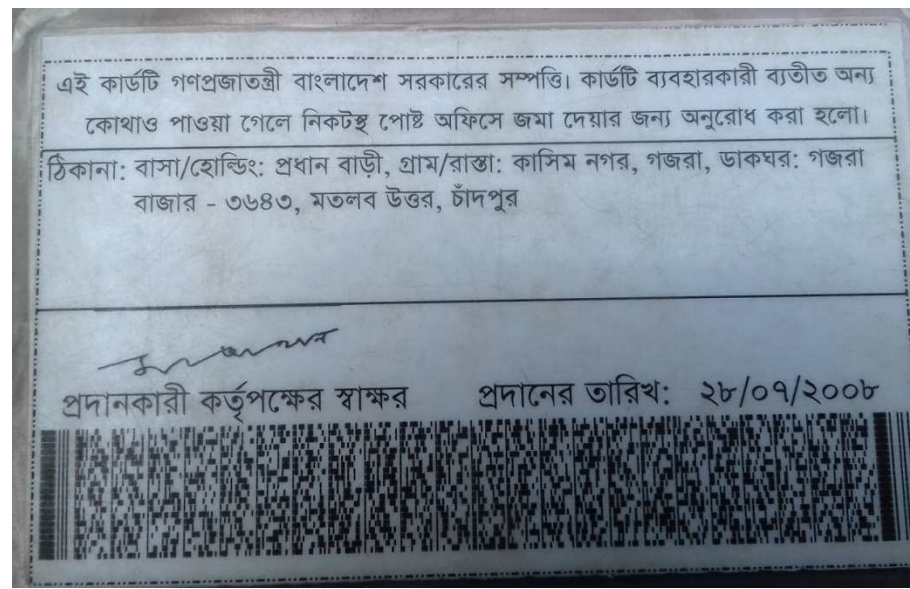 এই কার্ডটি গণপ্রজাতন্ত্রী বাংলাদেশ সরকারের সম্পত্তি। কার্ডটি ব্যবহারকারী ব্যতীত অন্য
কোথাও পাওয়া গেলে নিকটস্থ পোষ্ট অফিসে জমা দেয়ার জন্য অনুরোধ করা হলো।
ঠিকানা: বাসা/হোল্ডিং: প্রধান বাড়ী, গ্রাম/রাস্তা: কাসিম নগর, গজরা, ডাকঘর: গজরা
বাজার - ৩৬৪৩, মতলব উত্তর, চাঁদপুর
প্রদানকারী কর্তৃপক্ষের স্বাক্ষর প্রদানের তারিখ: ২৮/০৭/২০০৮